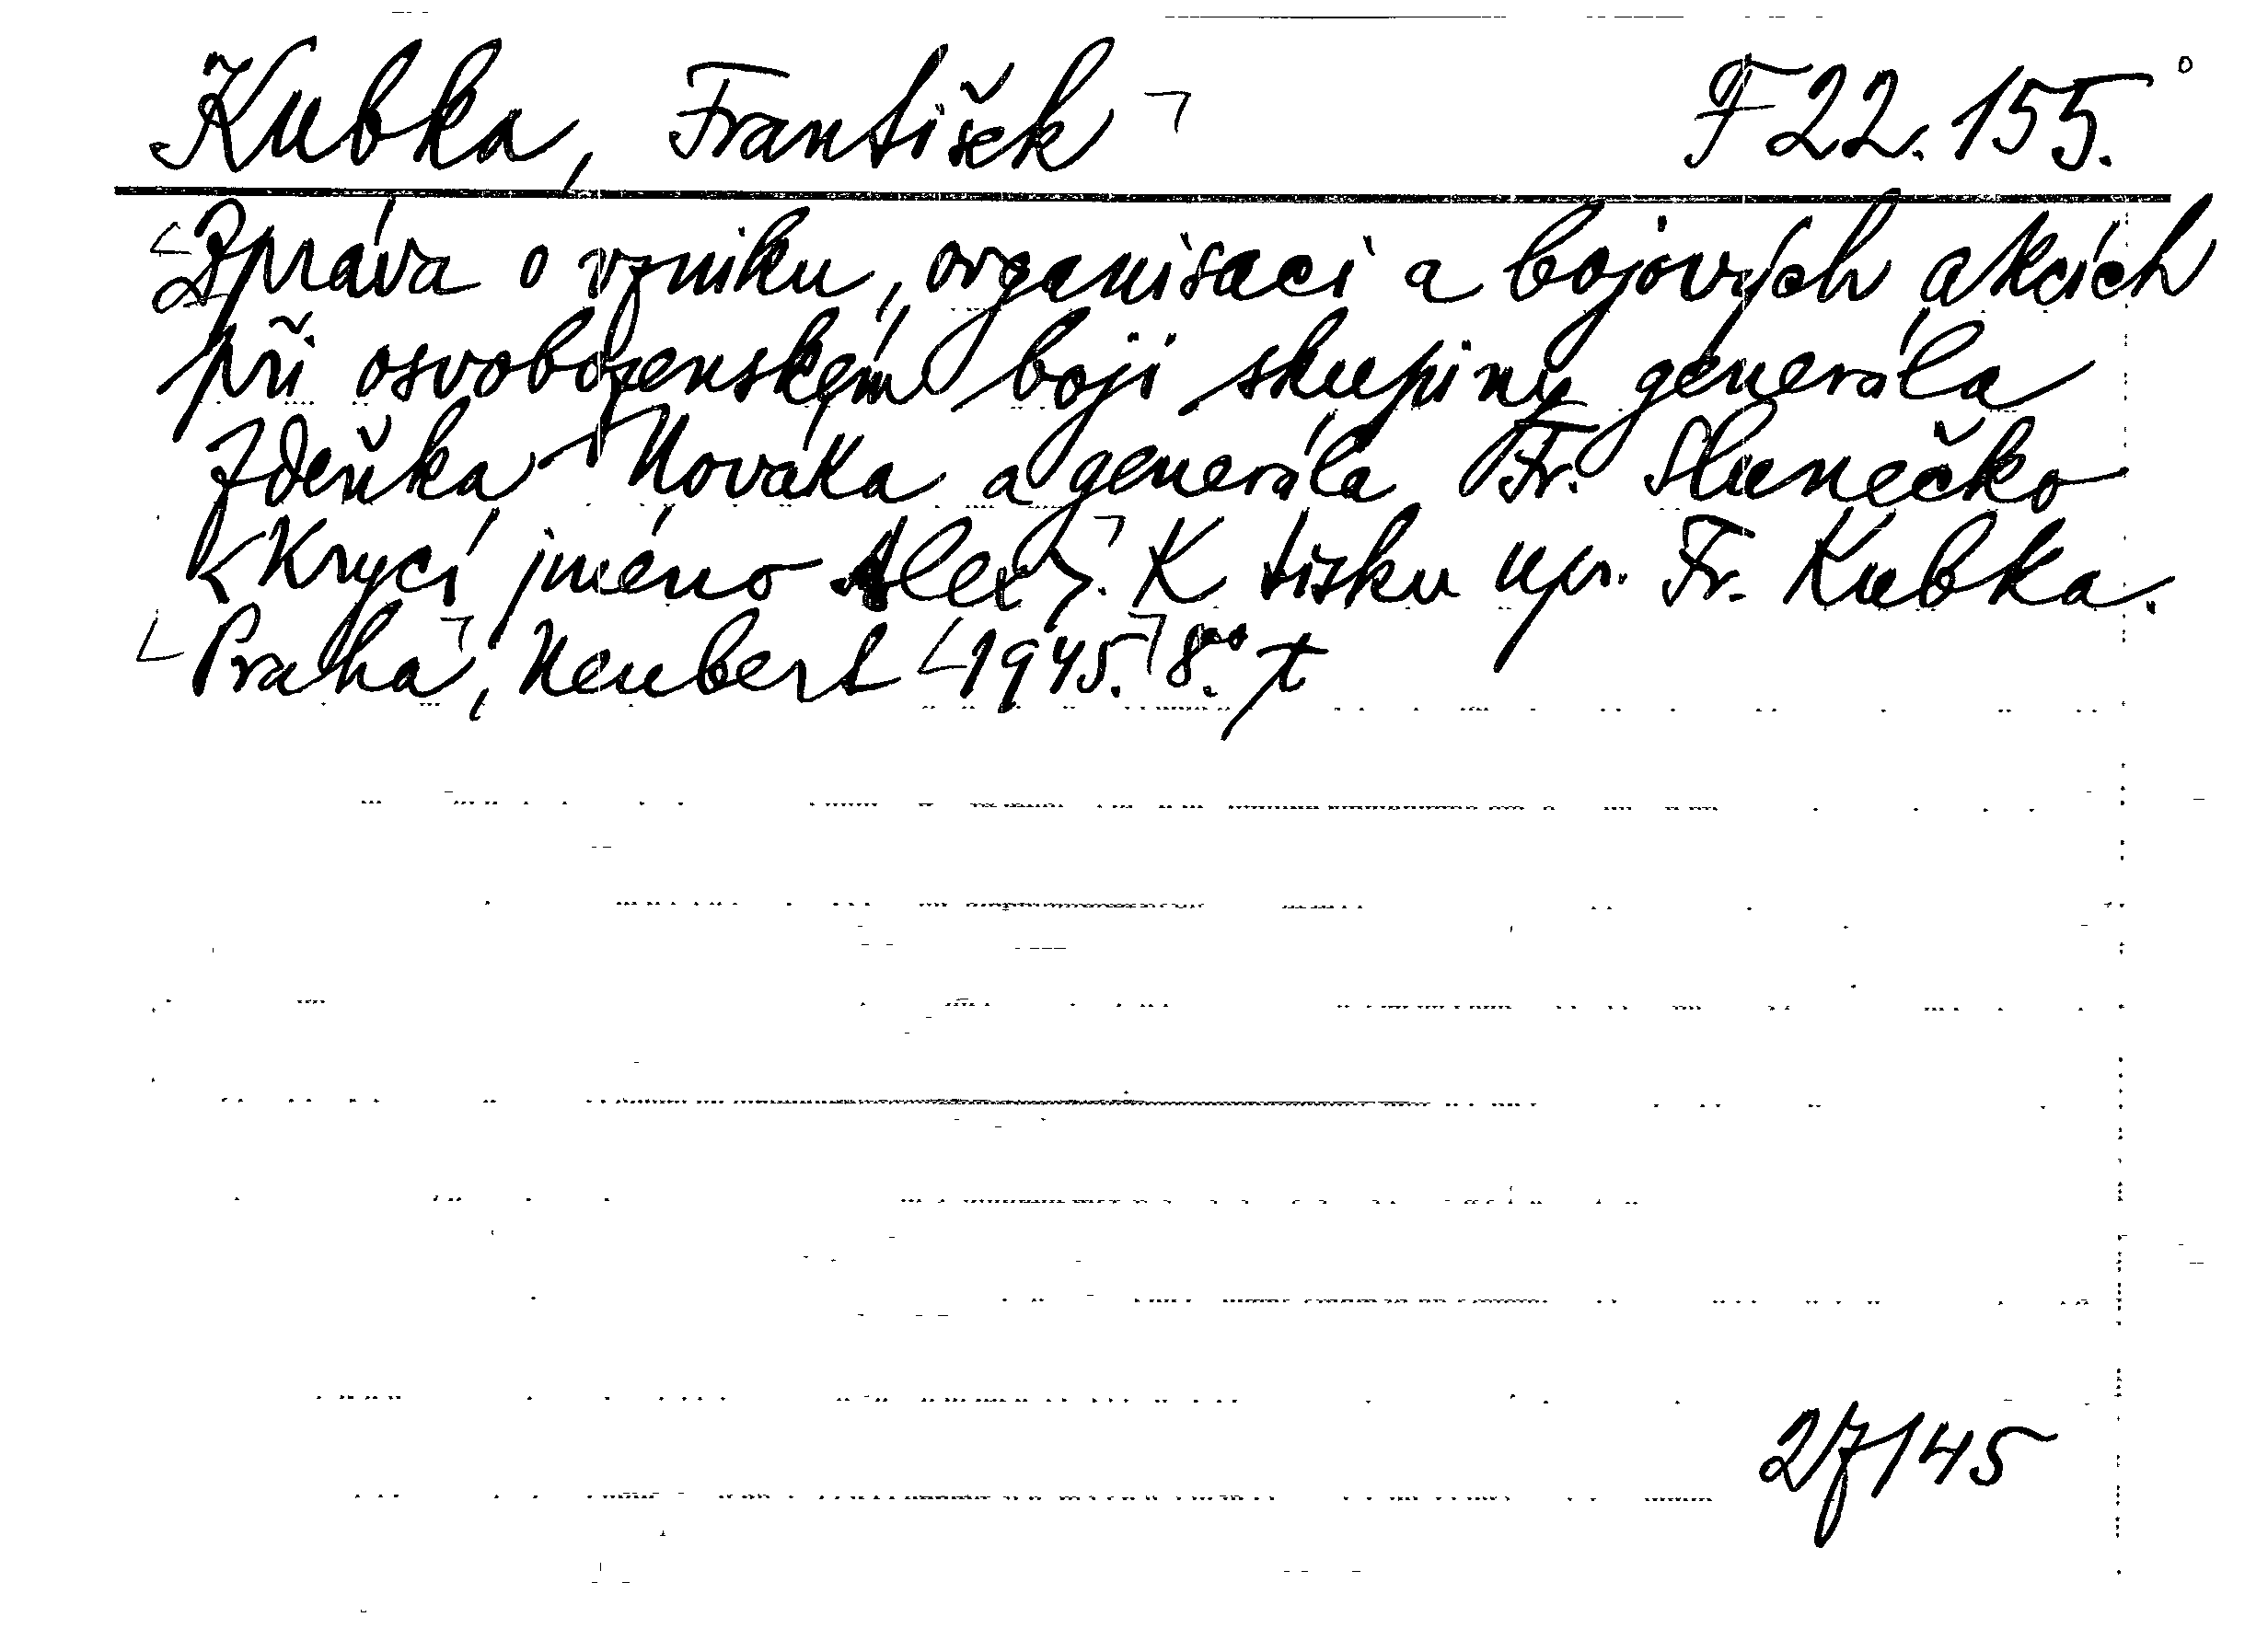 Kubka, František F 22.155.
Zpráva o vzniku, organisaci a bojových akcích
při osvobozenském boji skupiny generála
Zdeňka Nováka a generála Fr. Slunečko
<Krycí jméno Alex>. K tisku upr. Fr. Kubka.
Praha, Neubert 1945. 8.°
27145